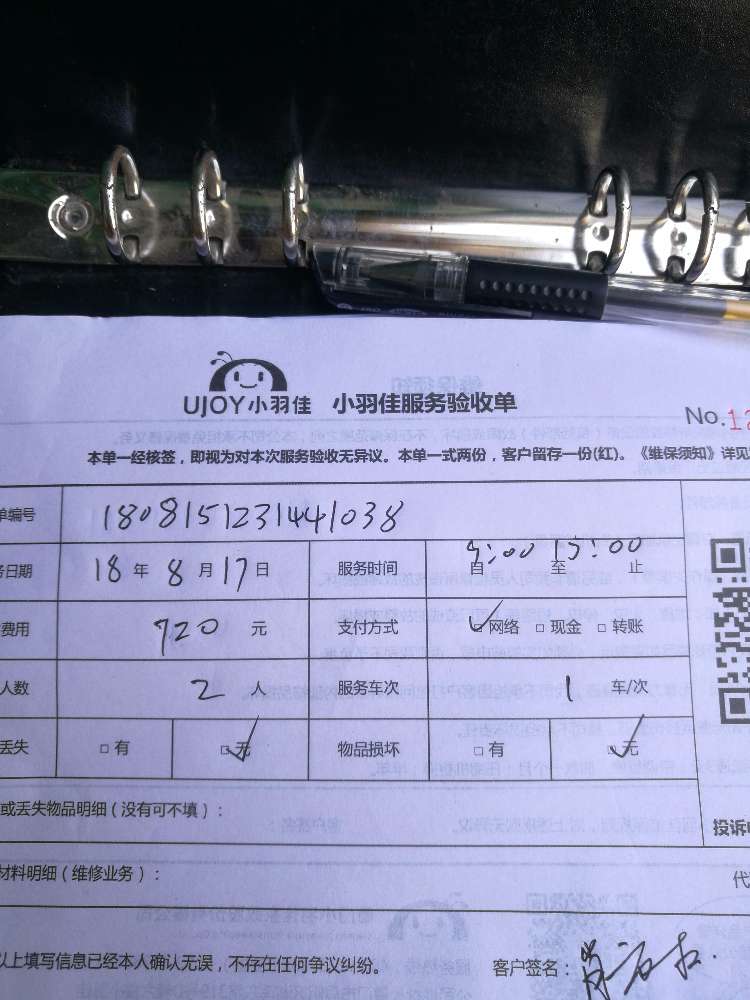 UJOY小羽佳 小羽佳服务验收单
No.12
本单一经核签，即视为对本次服务验收无异议。本单一式两份，客户留存一份(红)。《维保须知》详见
单编号 1808151231441038
务日期 18 年 8 月 17 日 服务时间 自 9:00 至 15:00 止
费用 720 元 支付方式 ☑网络 □现金 □转账
人数 2 人 服务车次 1 车/次
丢失 □有 ☑无 物品损坏 □有 ☑无
或丢失物品明细（没有可不填）：
投诉
材料明细（维修业务）：
代
以上填写信息已经本人确认无误，不存在任何争议纠纷。
客户签名：